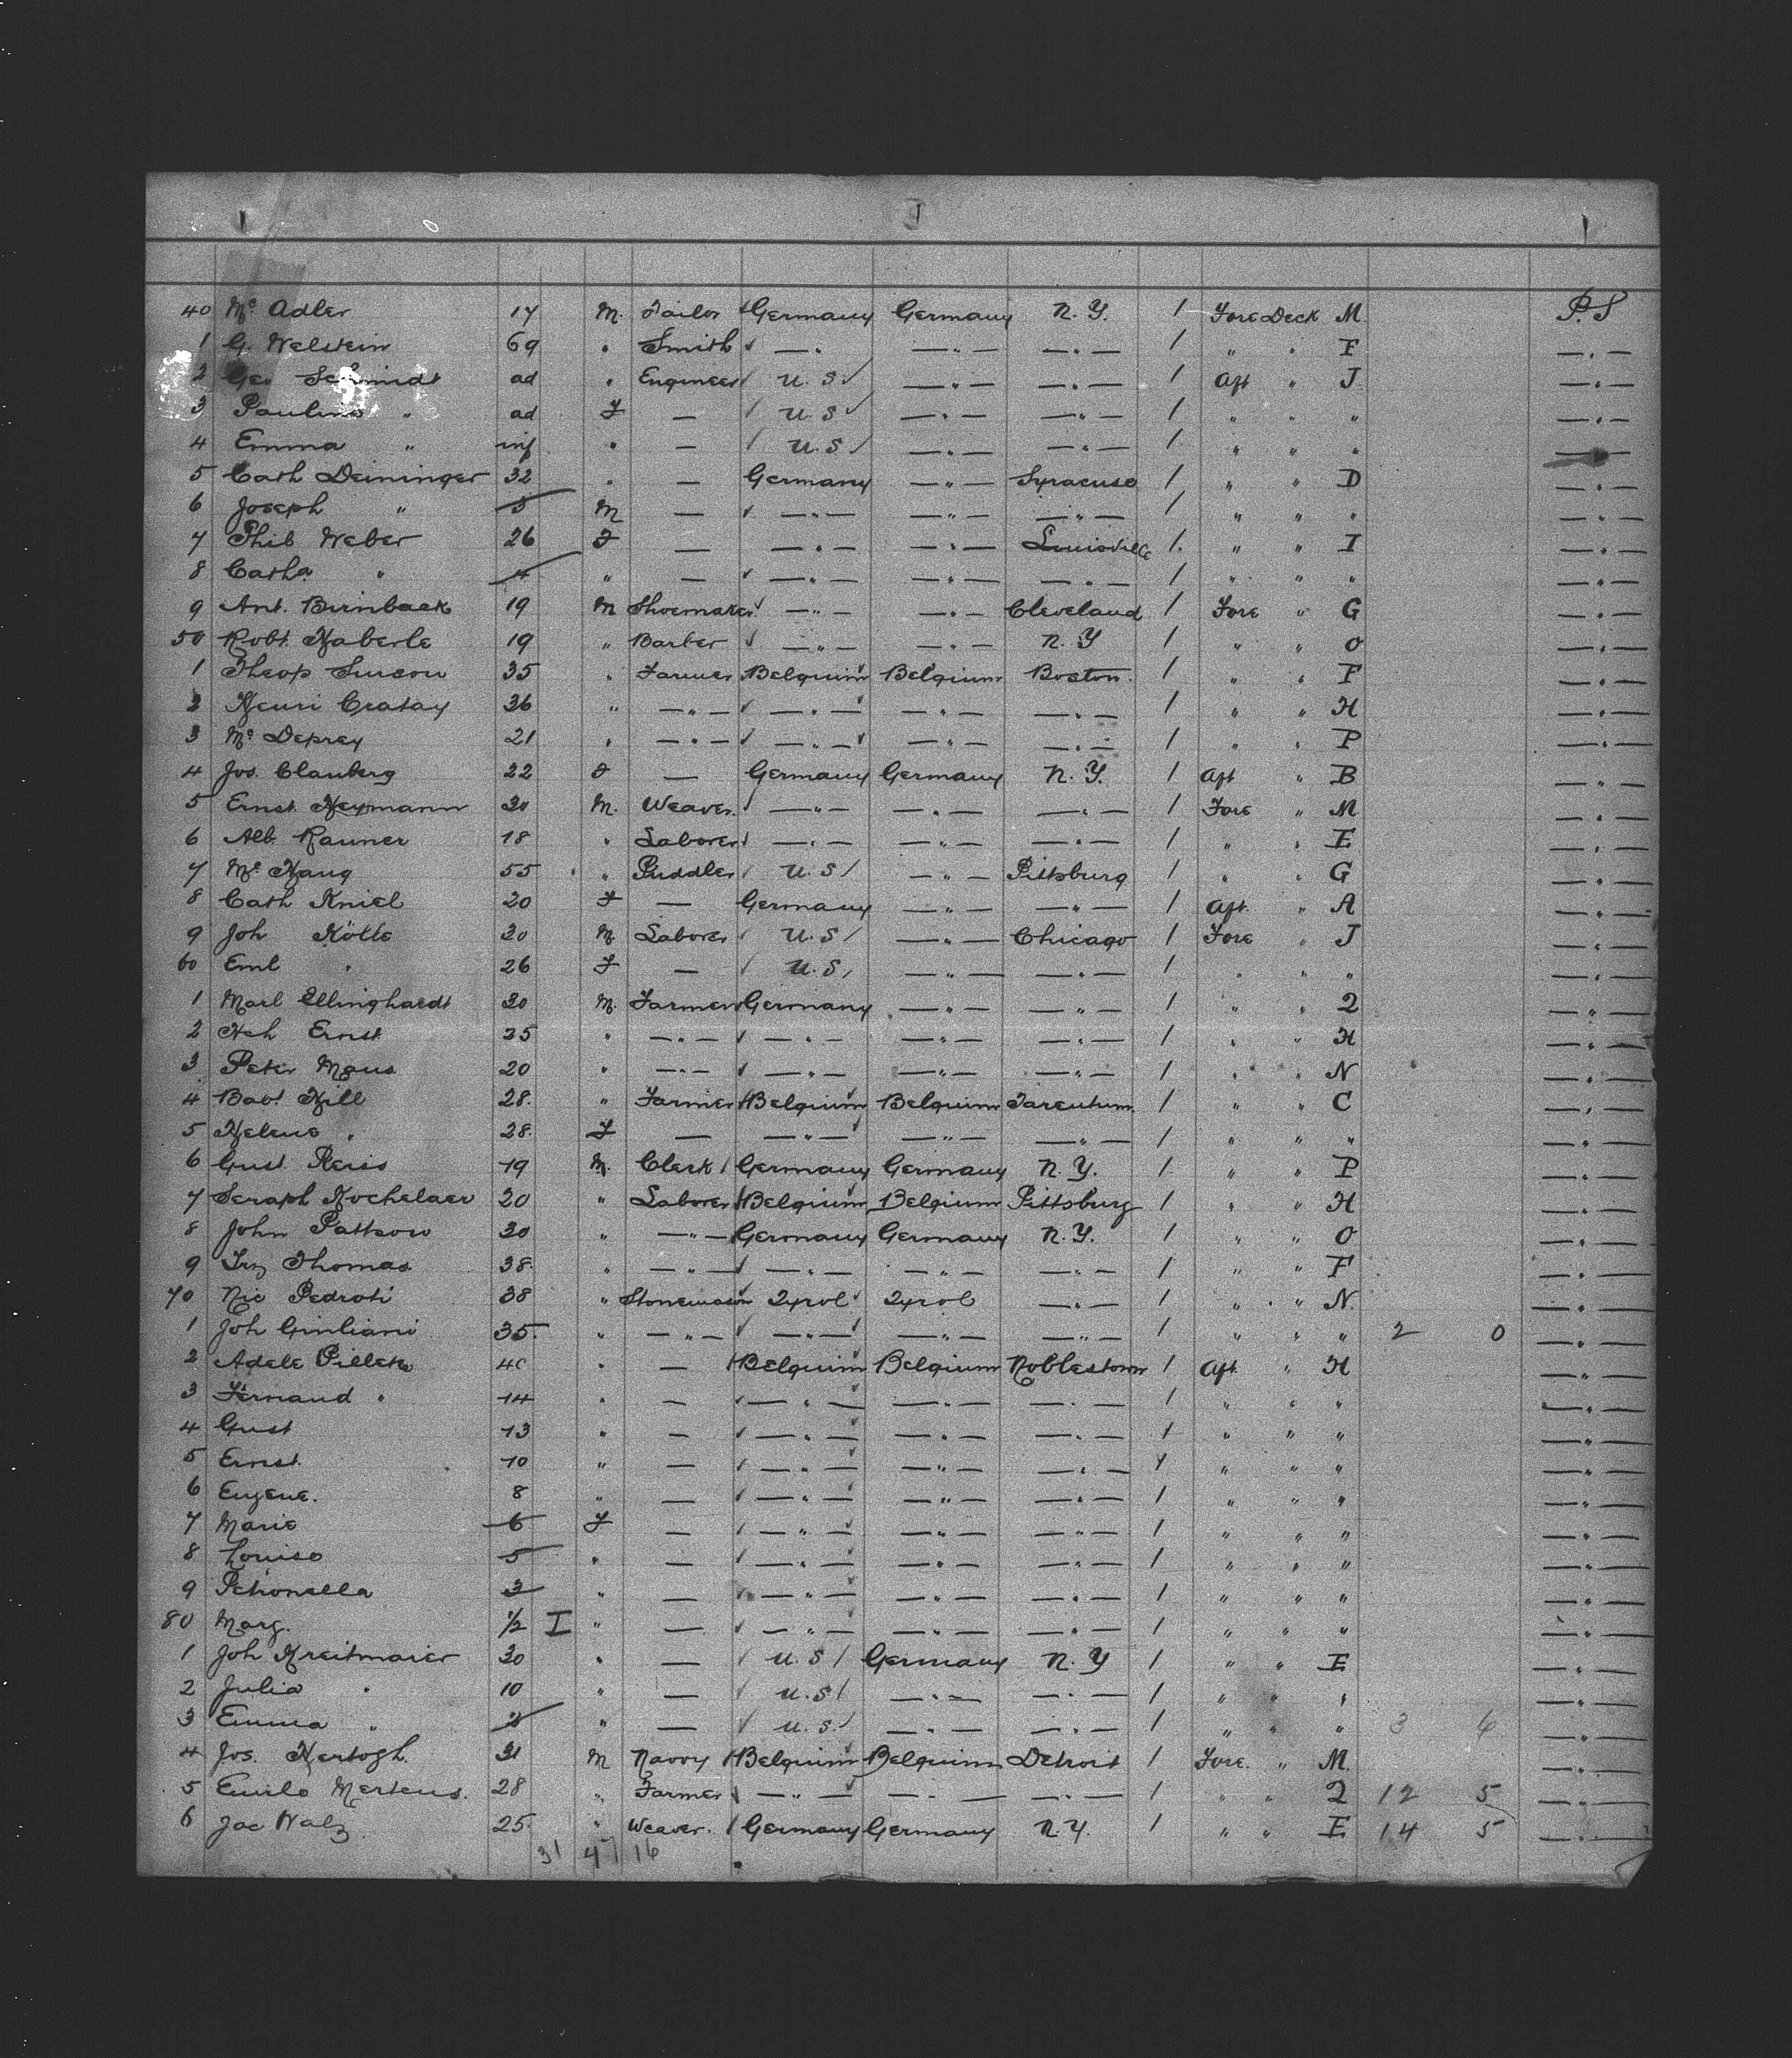 40 Mc Adler 17 M. Tailor Germany Germany N.Y. 1 Fore Deck M. P.S
1 G. Welstein 69 " Smith — " — " — — " — 1 " " F — " —
2 Geo Schmidt ad " Engineer U.S — " — — " — 1 Aft " J — " —
3 Pauline " ad F — U.S — " — — " — 1 " " " — " —
4 Emma " inf " — U.S — " — — " — 1 " " " — " —
5 Cath Deininger 32 " — Germany — " — Syracuse 1 " " D — " —
6 Joseph " 5 M — — " — — " — — " — 1 " " " — " —
7 Phil Weber 26 F — — " — — " — Louisville 1. " " I — " —
8 Catha " 4 " — — " — — " — — " — 1 " " " — " —
9 Ant. Birnback 19 M Shoemaker — " — — " — Cleveland 1 Fore " G — " —
50 Robt. Haberle 19 " Barber — " — — " — N.Y 1 " " O — " —
1 Theop Simeon 35 " Farmer Belgium Belgium Boston. 1 " " F — " —
2 Henri Cratay 36 " — " — — " — — " — — " — 1 " " H — " —
3 Mc Deprey 21 " — " — — " — — " — — " — 1 " " P — " —
4 Jos. Clauberg 22 F — Germany Germany N.Y. 1 Aft " B — " —
5 Ernst Heymann 30 M. Weaver. — " — — " — — " — 1 Fore " M — " —
6 Alb. Rauner 18 " Laborer — " — — " — — " — 1 " " E — " —
7 Mc Haug 55 " Puddler U.S — " — Pittsburg 1 " " G — " —
8 Cath Kniel 20 F — Germany — " — — " — 1 Aft. " A — " —
9 Joh Kölle 30 M. Laborer U.S — " — Chicago 1 Fore " J — " —
60 Eml " 26 F — U.S. — " — — " — 1 " " " — " —
1 Marl Ellinghardt 30 M. Farmer Germany — " — — " — 1 " " Q — " —
2 Hch Ernst 35 " — " — — " — — " — — " — 1 " " H — " —
3 Peter Maus 20 " — " — — " — — " — — " — 1 " " N — " —
4 Bat Hill 28. " Farmer Belgium Belgium Tarentum. 1 " " C — " —
5 Helene " 28. F — — " — — " — — " — 1 " " " — " —
6 Gust Reiss 19 M. Clerk Germany Germany N.Y. 1 " " P — " —
7 Seraph Kochelaer 20 " Laborer Belgium Belgium Pittsburg 1 " " H — " —
8 John Patkow 30 " — " — Germany Germany N.Y. 1 " " O — " —
9 Frz Thomas 38. " — " — — " — — " — — " — 1 " " F — " —
70 Nic Pedroti 38 " Stonemason Tyrol Tyrol — " — 1 " " N. — " —
1 Joh Giuliani 35. " — " — — " — — " — — " — 1 " " " 2 0 — " —
2 Adele Pillets 40 " — Belgium Belgium Noblestown 1 Aft " H — " —
3 Fernand " 14 " — — " — — " — — " — 1 " " " — " —
4 Gust 13 " — — " — — " — — " — 1 " " " — " —
5 Ernst. 10 " — — " — — " — — " — 1 " " " — " —
6 Eugene. 8 " — — " — — " — — " — 1 " " " — " —
7 Marie 6 F — — " — — " — — " — 1 " " " — " —
8 Louise 5 " — — " — — " — — " — 1 " " " — " —
9 Petronella 3 " — — " — — " — — " — 1 " " " — " —
80 Marg. 1/2 I " — — " — — " — — " — 1 " " " — " —
1 Joh Kreitmaier 30 " — U.S Germany N.Y 1 " " E — " —
2 Julia " 10 " — U.S — " — — " — 1 " " " — " —
3 Emma " " — U.S. — " — — " — 1 " " " 3 6 — " —
4 Jos. Hertogh. 31 M Navvy Belgium Belgium Detroit 1 Fore. " M. — " —
5 Emile Mertens. 28 " Farmer — " — — " — — " — 1 " " Q 12 5 — " —
6 Jac Walz. 25. " Weaver. Germany Germany N.Y. 1 " " E 14 5 — " —
31 47 16